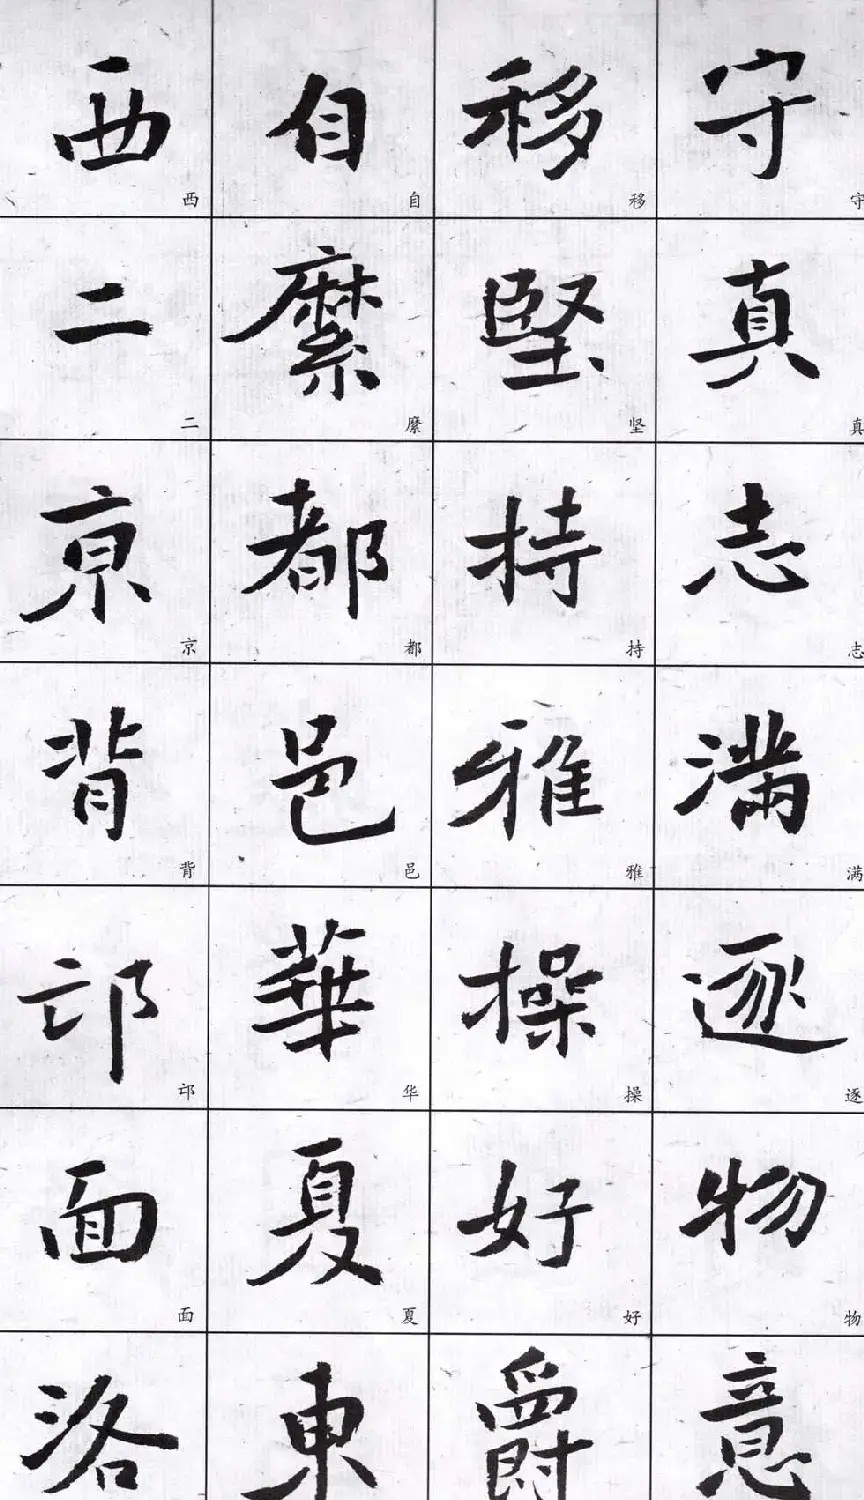 守真志滿逐物意
守真志满逐物
移堅持雅操好爵
移坚持雅操好
自縻都邑華夏東
自縻都邑华夏
西二京背邙面洛
西二京背邙面